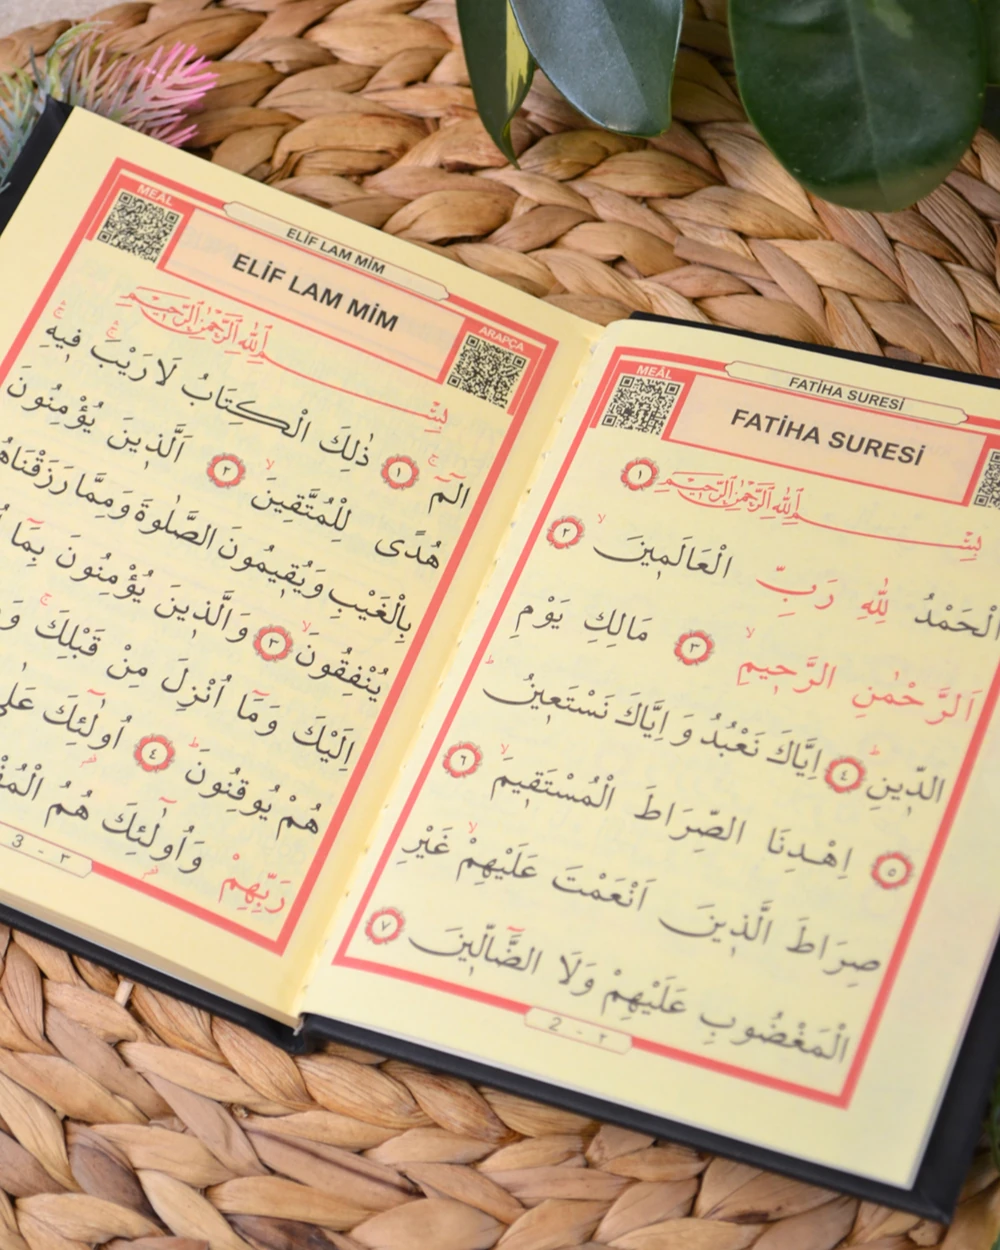 FATİHA SURESİ
MEÂL
FATİHA SURESİ
بِسْمِ اللّٰهِ الرَّحْمٰنِ الرَّحِيمِ ﴿١﴾
اَلْحَمْدُ لِلّٰهِ رَبِّ الْعَالَمِينَۙ ﴿٢﴾
اَلرَّحْمٰنِ الرَّحِيمِۙ ﴿٣﴾ مَالِكِ يَوْمِ
الدِّينِۜ ﴿٤﴾ اِيَّاكَ نَعْبُدُ وَ اِيَّاكَ نَسْتَعِينُۜ
﴿٥﴾ اِهْدِنَا الصِّرَاطَ الْمُسْتَقِيمَۙ ﴿٦﴾
صِرَاطَ الَّذِينَ اَنْعَمْتَ عَلَيْهِمْۙ غَيْرِ
الْمَغْضُوبِ عَلَيْهِمْ وَلَا الضَّٓالِّينَ ﴿٧﴾
2 - ٢
ELİF LAM MİM
MEÂL
ELİF LAM MİM
ARAPÇA
بِسْمِ اللّٰهِ الرَّحْمٰنِ الرَّحِيمِ
الٓمٓۚ ﴿١﴾ ذٰلِكَ الْكِتَابُ لَا رَيْبَۚۛ فِيهِۚۛ
هُدًى لِلْمُتَّقِينَۙ ﴿٢﴾ اَلَّذِينَ يُؤْمِنُونَ
بِالْغَيْبِ وَيُقِيمُونَ الصَّلٰوةَ وَمِمَّا رَزَقْنَاهُ
يُنْفِقُونَۙ ﴿٣﴾ وَالَّذِينَ يُؤْمِنُونَ بِمَٓا
اِلَيْكَ وَمَٓا اُنْزِلَ مِنْ قَبْلِكَۚ
هُمْ يُوقِنُونَۜ ﴿٤﴾ اُو۬لٰٓئِكَ عَلٰى
رَبِّهِمْ وَاُو۬لٰٓئِكَ هُمُ
3 - ٣